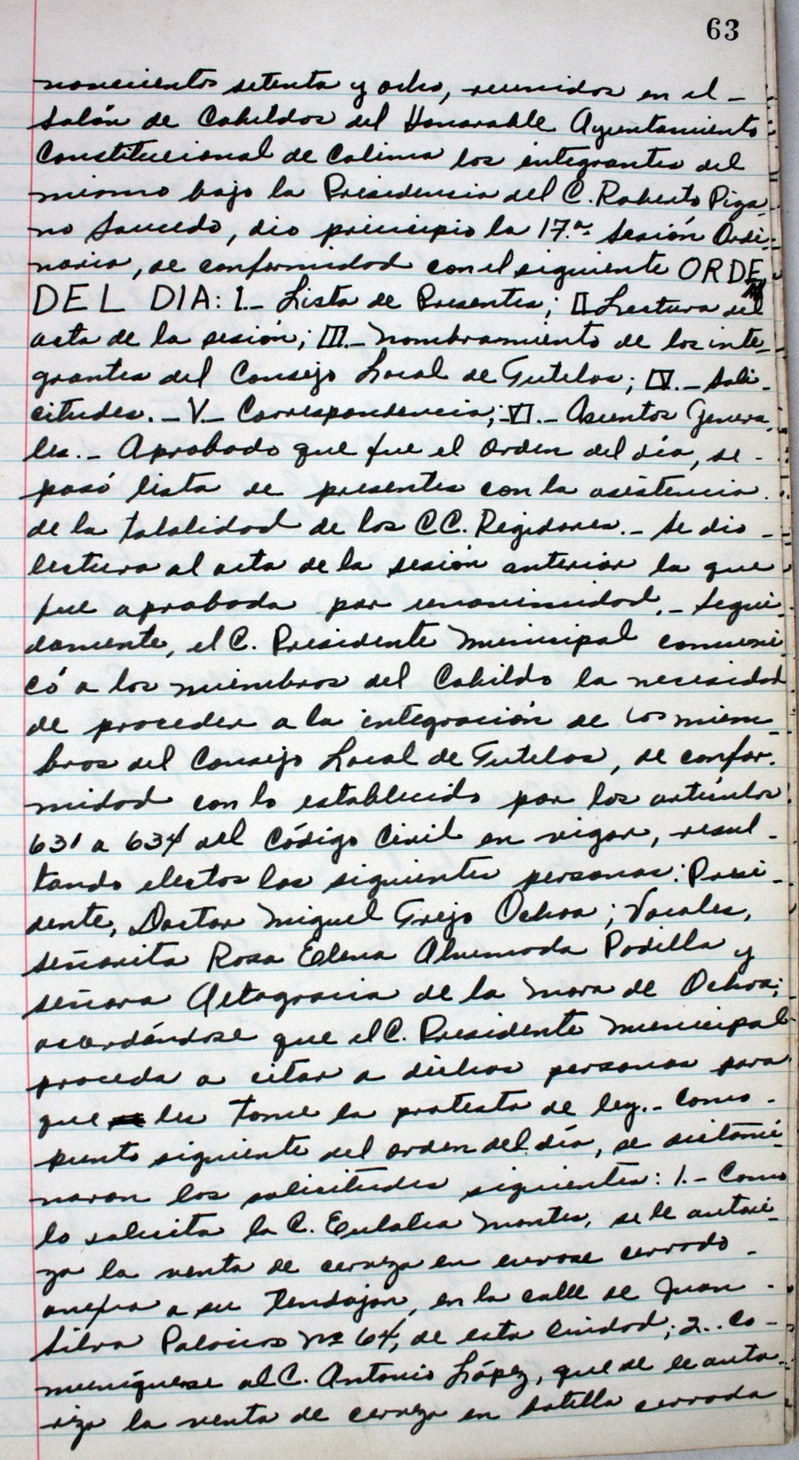 63
novecientos setenta y ocho, reunidos en el -
Salón de Cabildos del Honorable Ayuntamiento
Constitucional de Colima los integrantes del
mismo bajo la Presidencia del C. Roberto Piza-
no Saucedo, dio principio la 17.a Sesión Ordi-
naria, de conformidad con el siguiente ORDEN
DEL DIA: I.- Lista de Presentes; II Lectura del
acta de la sesión; III.- Nombramiento de los inte-
grantes del Consejo Local de Tutelas; IV.- Soli-
citudes.- V- Correspondencia; VI.- Asuntos Genera-
les.- Aprobado que fue el orden del día, se -
pasó lista de presentes con la asistencia
de la totalidad de los CC. Regidores.- Se dio -
lectura al acta de la sesión anterior la que
fue aprobada por unanimidad.- Segui-
damente, el C. Presidente Municipal comuni-
có a los miembros del Cabildo la necesidad
de proceder a la integración de los miem-
bros del Consejo Local de Tutelas, de confor-
midad con lo establecido por los artículos
631 a 634 del Código Civil en vigor, resul-
tando electos las siguientes personas: Presi-
dente, Doctor Miguel Trejo Ochoa; Vocales,
señorita Rosa Elena Ahumada Padilla y
señora Altagracia de la Mora de Ochoa;
acordándose que el C. Presidente Municipal
proceda a citar a dichas personas para
que les tome la protesta de ley.- Como -
punto siguiente del orden del día, se dictami-
naron las solicitudes siguientes: 1.- Como
lo solicita la C. Eulalia Montes, se le autori-
za la venta de cerveza en envase cerrado -
anexa a su tendajón, en la calle de Juan -
Silva Palacios No 64, de esta ciudad; 2.- Co-
muníquese al C. Antonio López, que se le auto-
riza la venta de cerveza en botella cerrada